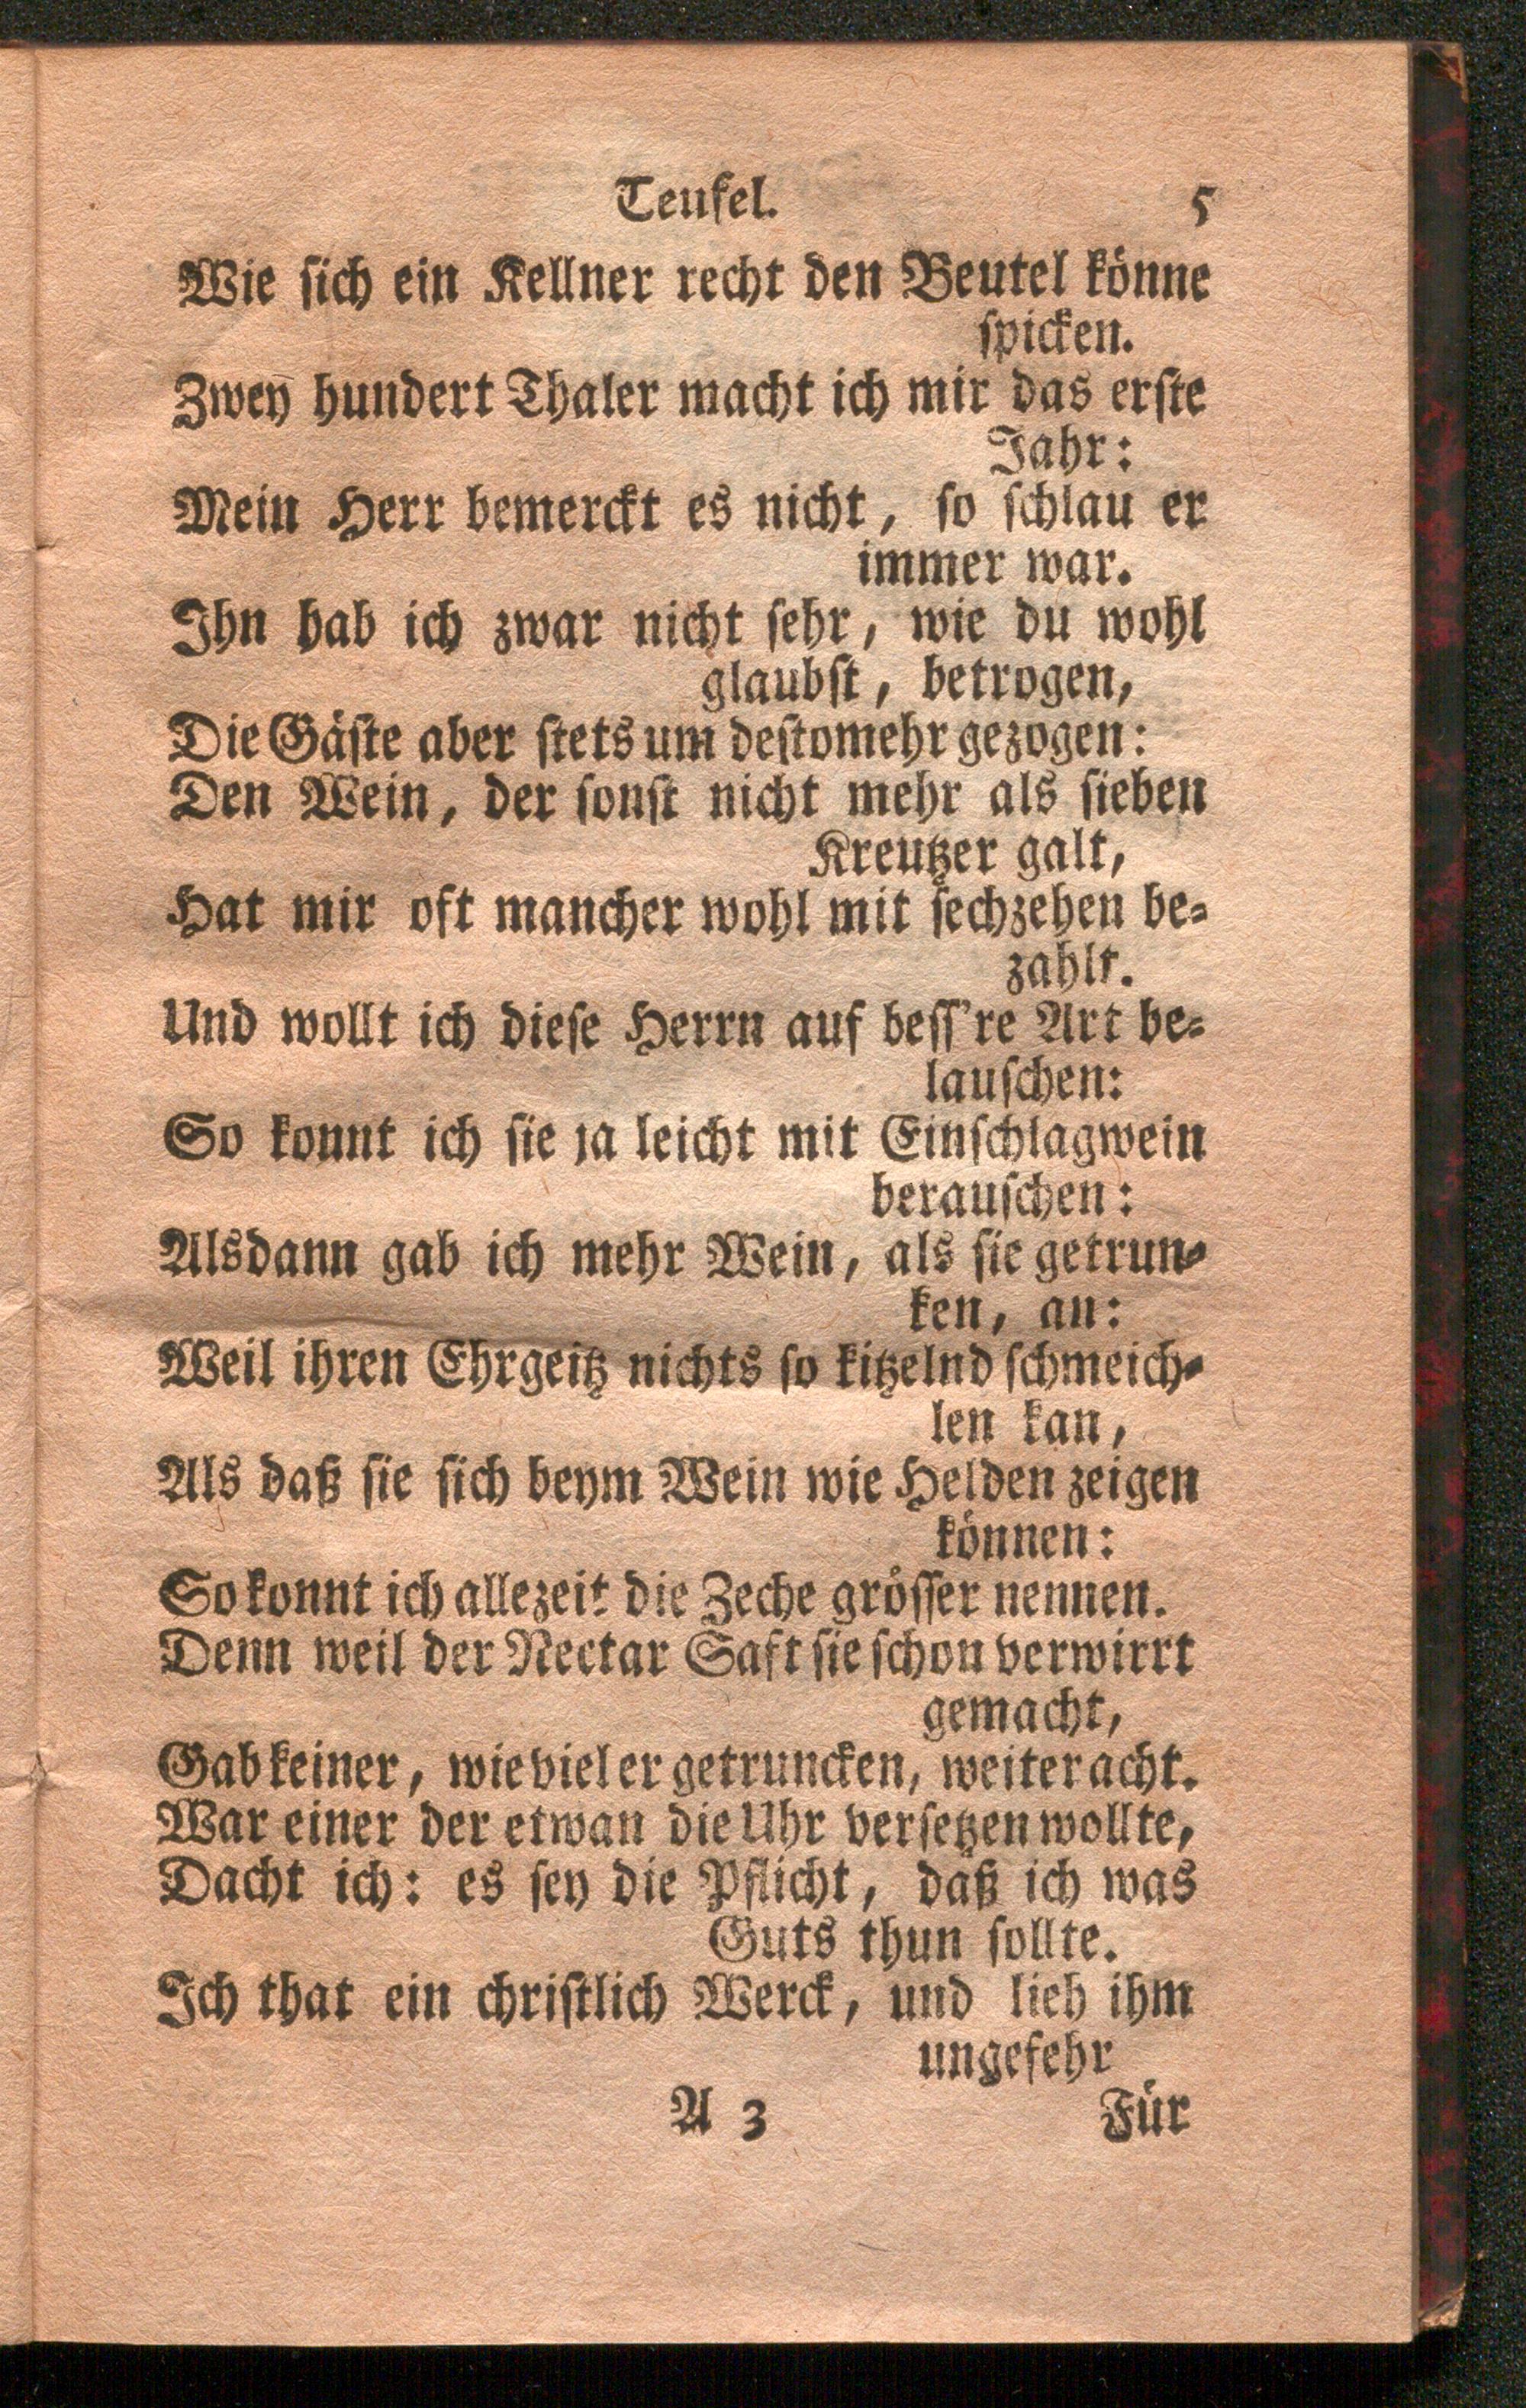 Teufel. 5
Wie ſich ein Kellner recht den Beutel könne
ſpicken.
Zwey hundert Thaler macht ich mir das erſte
Jahr:
Mein Herr bemerckt es nicht, ſo ſchlau er
immer war.
Ihn hab ich zwar nicht ſehr, wie du wohl
glaubſt, betrogen,
Die Gäſte aber ſtets um deſtomehr gezogen:
Den Wein, der ſonſt nicht mehr als ſieben
Kreutzer galt,
Hat mir oft mancher wohl mit ſechzehen be⸗
zahlt.
Und wollt ich dieſe Herrn auf beſſ're Art be⸗
lauſchen:
So konnt ich ſie ja leicht mit Einſchlagwein
berauſchen:
Alsdann gab ich mehr Wein, als ſie getrun⸗
ken, an:
Weil ihren Ehrgeitz nichts ſo kitzelnd ſchmeich⸗
len kan,
Als daß ſie ſich beym Wein wie Helden zeigen
können:
So konnt ich allezeit die Zeche gröſſer nennen.
Denn weil der Nectar Saft ſie ſchon verwirrt
gemacht,
Gab keiner, wie viel er getruncken, weiter acht.
War einer der etwan die Uhr verſetzen wollte,
Dacht ich: es ſey die Pflicht, daß ich was
Guts thun ſollte.
Ich that ein chriſtlich Werck, und lieh ihm
ungefehr
A 3 Für